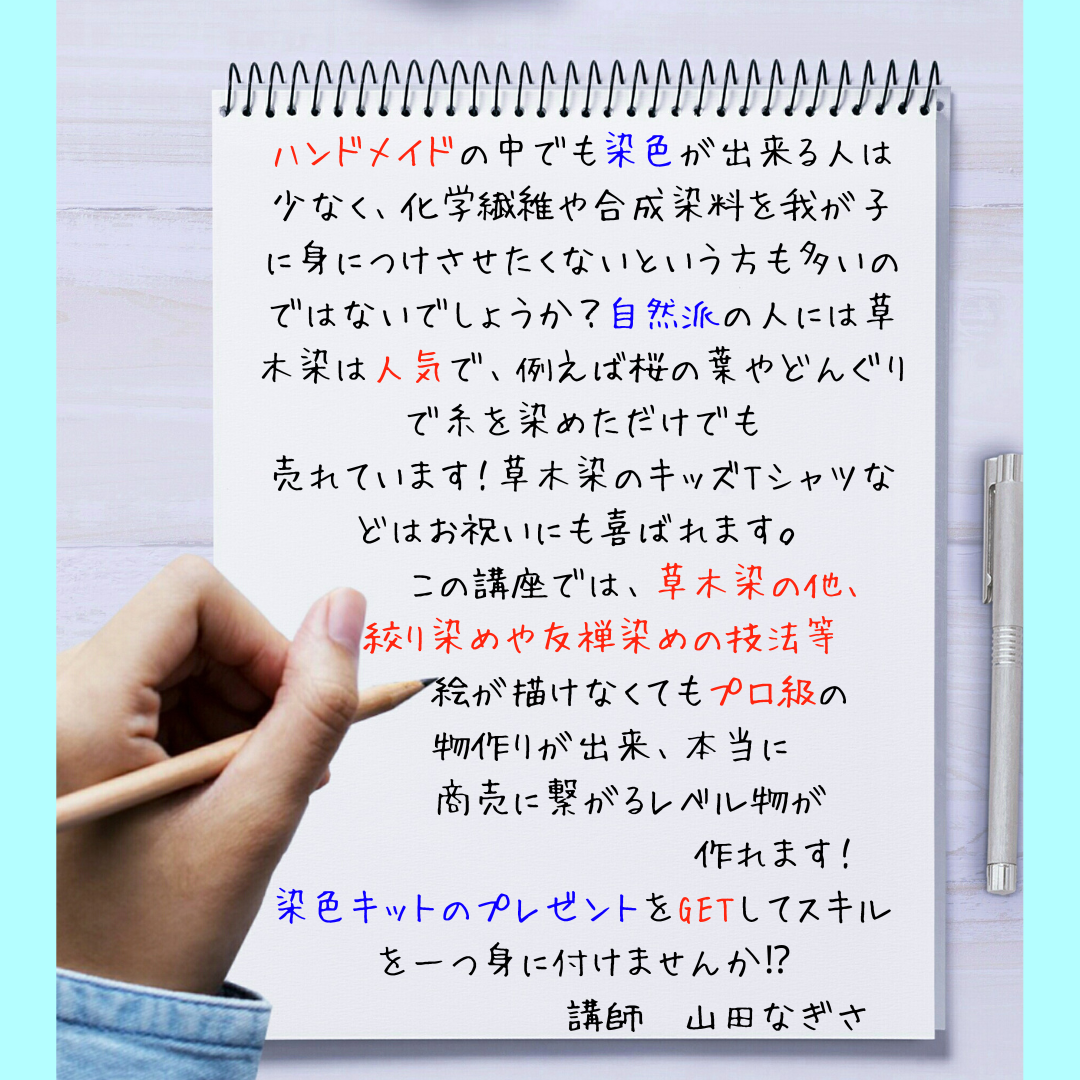 ハンドメイドの中でも染色が出来る人は
少なく、化学繊維や合成染料を我が子
に身につけさせたくないという方も多いの
ではないでしょうか？自然派の人には草
木染は人気で、例えば桜の葉やどんぐり
で糸を染めただけでも
売れています！草木染のキッズTシャツな
どはお祝いにも喜ばれます。
この講座では、草木染の他、
絞り染めや友禅染めの技法等
絵が描けなくてもプロ級の
物作りが出来、本当に
商売に繋がるレベル物が
作れます！
染色キットのプレゼントをGETしてスキル
を一つ身に付けませんか⁉
講師　山田なぎさ